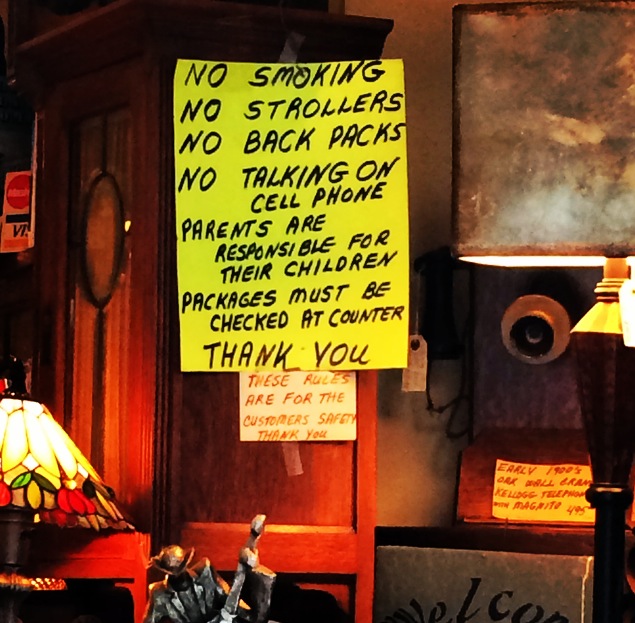 NO SMOKING
NO STROLLERS
NO BACK PACKS
NO TALKING ON
CELL PHONE
PARENTS ARE
RESPONSIBLE FOR
THEIR CHILDREN
PACKAGES MUST BE
CHECKED AT COUNTER
THANK YOU
THESE RULES
ARE FOR THE
CUSTOMERS SAFETY
THANK YOU
EARLY 1900'S
OAK WALL CRANK
KELLOGG TELEPHONE
WITH MAGNITO 495
Welcom
VI